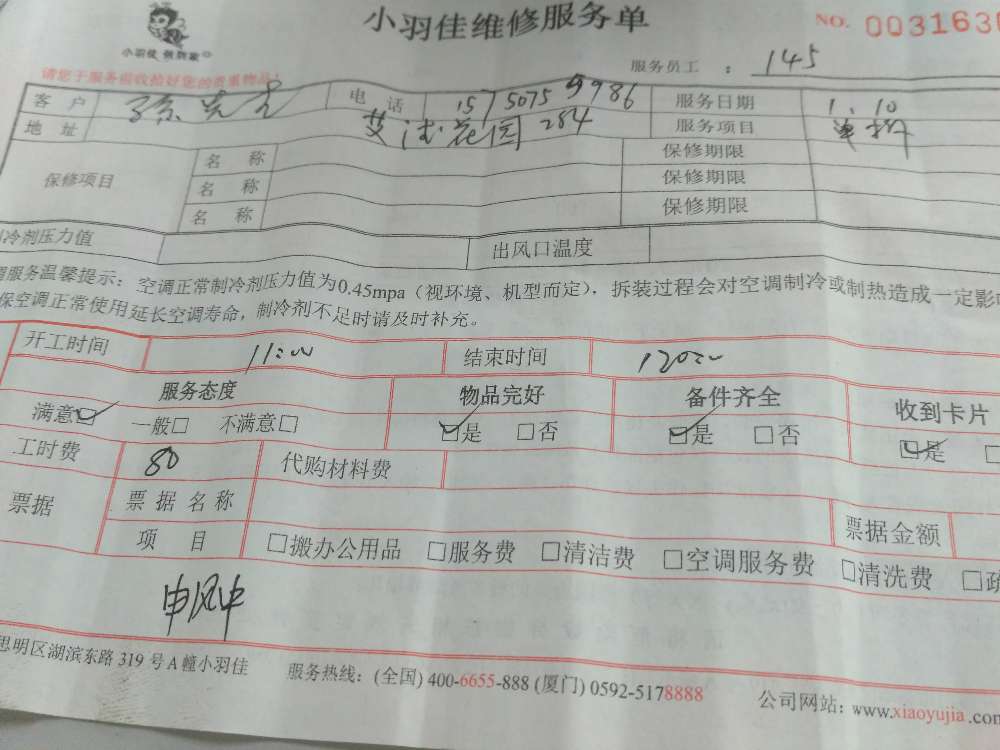 小羽佳维修服务单
NO. 0031636
小羽佳 领跑家
服务员工 : 145
请您于服务前收拾好您的贵重物品!
客户 孙先生 电话 15750759986 服务日期 1.10
地址 花园 284 服务项目
保修项目 名称 保修期限
名称 保修期限
名称 保修期限
冷剂压力值 出风口温度
服务温馨提示：空调正常制冷剂压力值为0.45mpa（视环境、机型而定），拆装过程会对空调制冷或制热造成一定影响
保空调正常使用延长空调寿命，制冷剂不足时请及时补充。
开工时间 11:00 结束时间 12:00
服务态度 物品完好 备件齐全 收到卡片
满意☑ 一般□ 不满意□ ☑是 □否 ☑是 □否 ☑是 □
工时费 80 代购材料费
票据 票据名称 票据金额
项目 □搬办公用品 □服务费 □清洁费 □空调服务费 □清洗费 □疏
申风中
思明区湖滨东路 319 号A幢小羽佳 服务热线：(全国) 400-6655-888 (厦门) 0592-5178888 公司网站：www.xiaoyujia.com